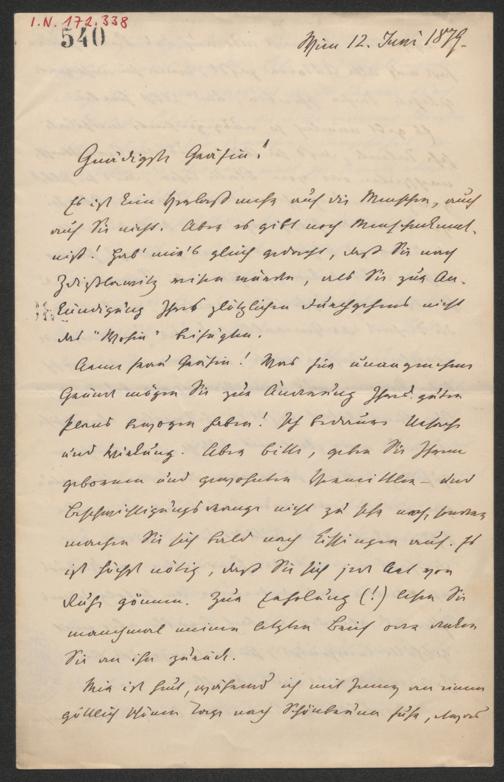 I.N. 172.338
540
Wien 12. Juni 1879.
Gnädigste Gräfin!
Es ist kein Verlaß mehr auf die Menschen, auch
auf Sie nicht. Aber es gibt noch Menschenkennt-
niß! Hab' mir's gleich gedacht, daß Sie nach
Zdißlawitz reisen würden, als Sie zur An-
kündigung Ihres plötzlichen Durchgehens nicht
das "Wohin" beifügten.
Arme Frau Gräfin! Was für unangenehme
Gründe mögen Sie zur Änderung Ihres guten
Plans bewogen haben! Ich bedaure Ursache
und Wirkung. Aber bitte, geben Sie Ihrem
gebornen und gewohnten Vermittler- und
Beschwichtigungsdrange nicht zu sehr nach, sondern
machen Sie sich bald nach Kissingen auf. Es
ist höchst nötig, daß Sie sich jede Art von
Ruhe gönnen. Zur Erholung (!) lesen Sie
manchmal meinen letzten Brief oder denken
Sie an ihn zurück.
Mir ist heut, während ich mit Jenny an einem
göttlich schönen Tage nach Schönbrunn fuhr,